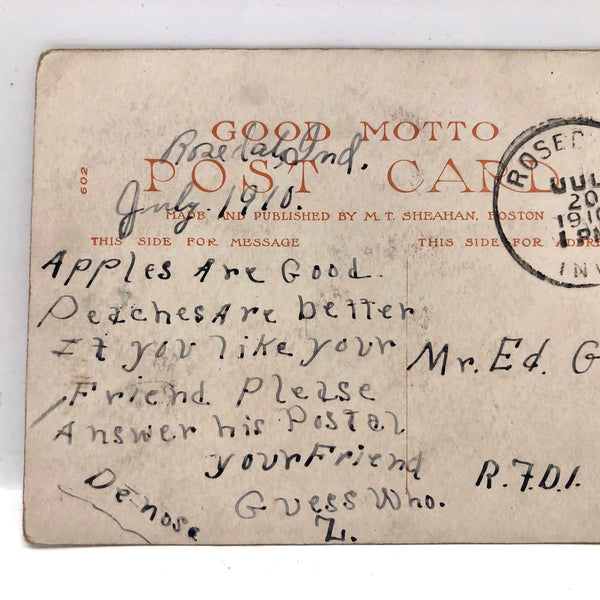 GOOD MOTTO
Rosedale, Ind.
POST CARD
July. 1910.
MADE AND PUBLISHED BY M. T. SHEAHAN, BOSTON
602
THIS SIDE FOR MESSAGE
THIS SIDE FOR ADDRE
ROSED
JUL
20
1910
1 PM
IN
Apples Are Good.
Peaches Are better
If you like your
Friend Please
Answer his Postal
your Friend
Guess Who.
Z.
Mr. Ed. G
R.F.D.1.